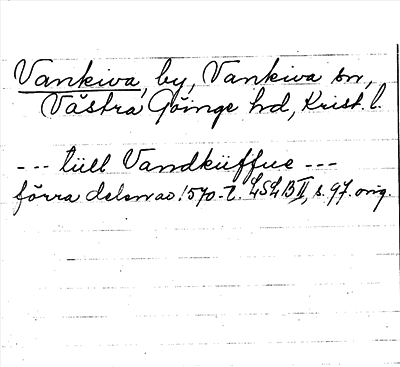 Vankiva, by, Vankiva sn,
Västra Göinge hd, Krist. l.
--- tüll Vandküffue ---
förra delen av 1570-t. LSLB II, s. 97. orig.